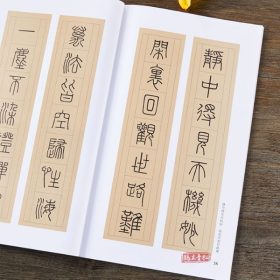 靜中得見天機妙
閑裏回觀世路難
萬法皆空歸性海
一塵不染證禪